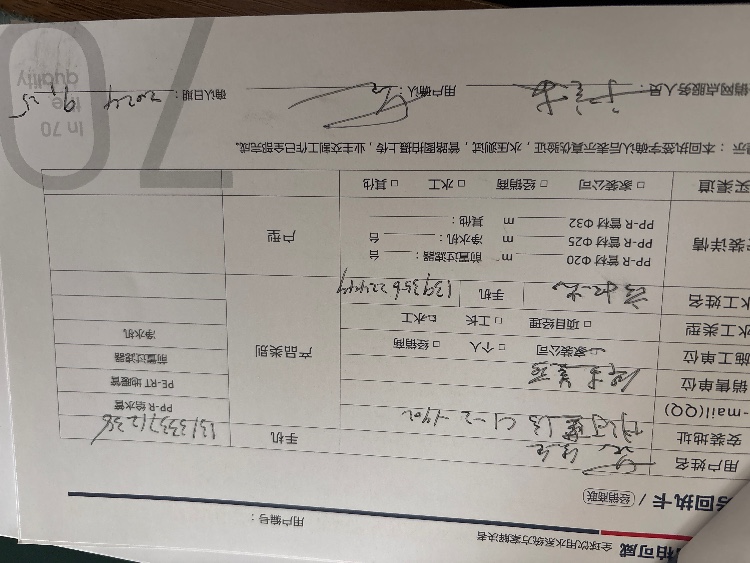 柏可威 全球饮用水系统方案解决者
用户编号：
回执卡 / 经销商联
用户姓名 手机 13133371238
安装地址 C1-2-1402
-mail(QQ)
销售单位
施工单位 家装公司 □ 个人 □ 经销商
水工类型 □ 项目经理 □ 工长 水工
水工姓名 手机
产品类别
PP-R 给水管
PE-RT 地暖管
前置过滤器
净水机
装详情
PP-R 管材 Φ20 m 前置过滤器： 台
PP-R 管材 Φ25 m 净水机： 台
PP-R 管材 Φ32 m 其他：
户型
买渠道 □ 家装公司 □ 经销商 □ 水工 □ 其他
示：本回执签字确认后表示真伪验证，水压测试，管路图拍摄上传，业主交割工作已全部完成。
销网点服务人员： 用户确认： 确认日期：2024 9.25
In 70
the
quality
70